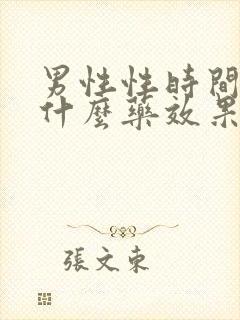 男性性時間
什麼藥效果
張文東